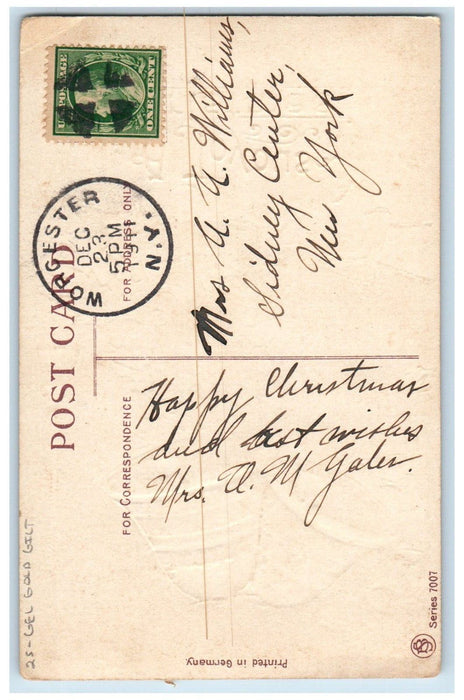 POST CARD
FOR CORRESPONDENCE
FOR ADDRESS ONLY
U.S. POSTAGE
ONE CENT
WORCESTER
DEC
23
5 PM
N.Y.
Happy Christmas
and best wishes
Mrs. A. M Galer.
Mrs A. A. Williams,
Sidney Center,
New York
25-GEL GOLD GILT
Printed in Germany
Series 7007